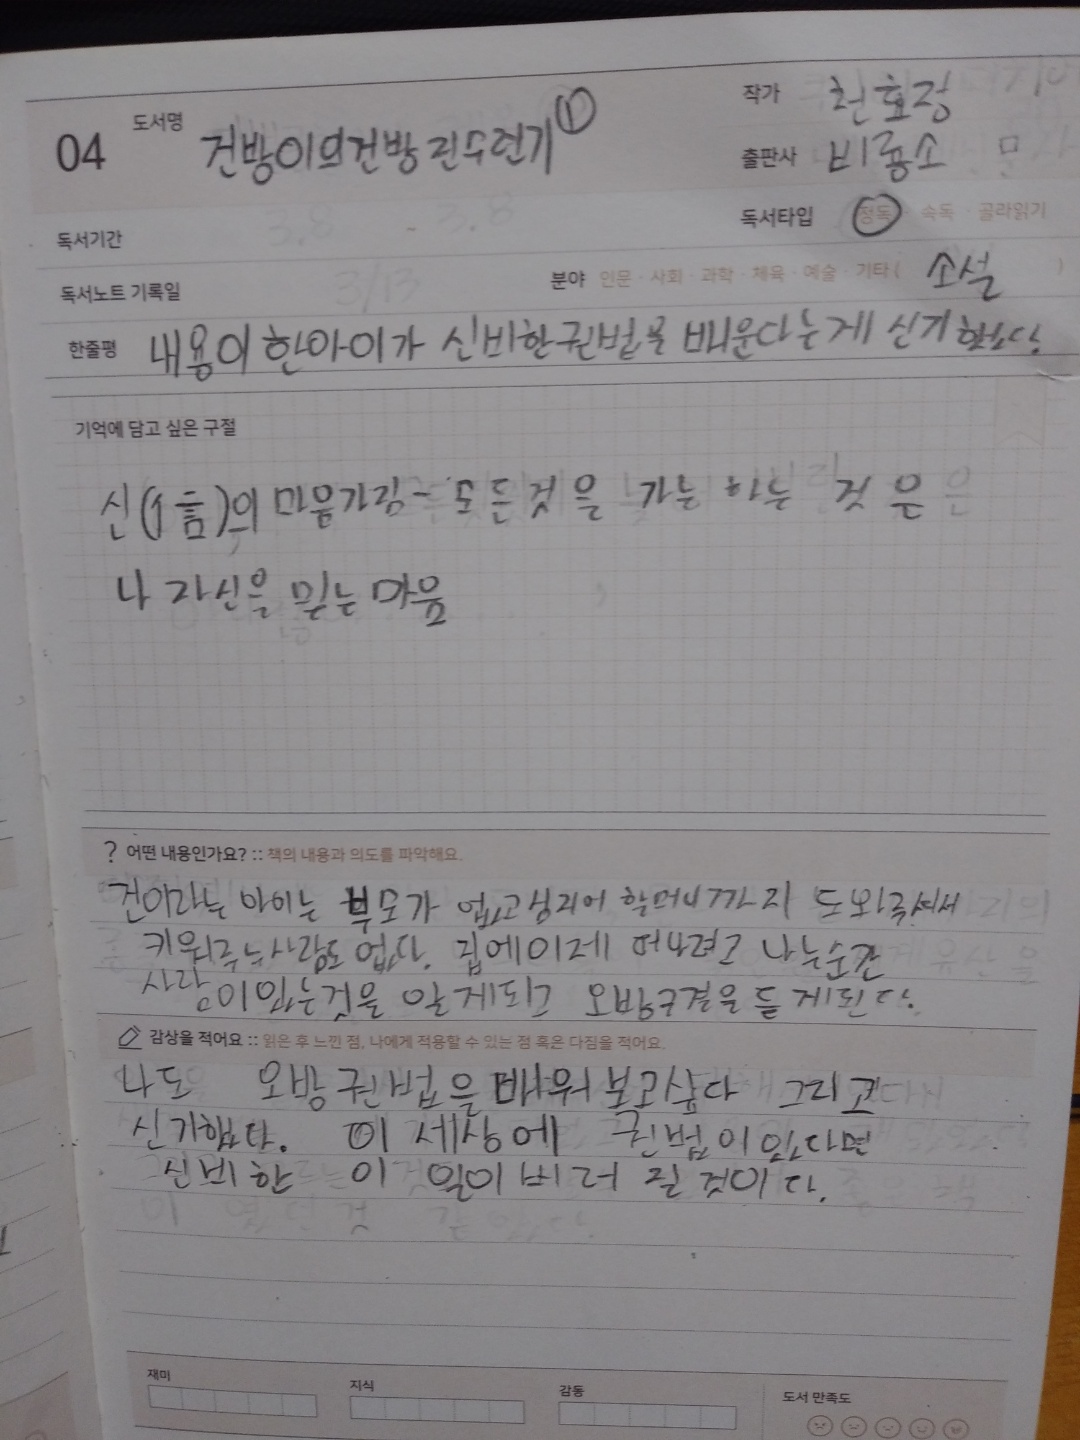 04 도서명 건방이의건방진수련기 ①
작가 천효정
출판사 비룡소
독서기간
독서타입 정독 · 속독 · 골라읽기
독서노트 기록일
분야 인문 · 사회 · 과학 · 체육 · 예술 · 기타 ( 소설 )
한줄평 내용이 한아이가 신비한권법을 배운다는게 신기했다.
기억에 담고 싶은 구절
신(信)의 마음가짐 - 모든것을 가능하는 것은
나 자신을 믿는 마음
? 어떤 내용인가요? :: 책의 내용과 의도를 파악해요.
건이라는 아이는 부모가 없고심지어 할머니까지 돌아가셔서
키워주는사람도 없다. 집에이제 떠나려고 나는순간
사람이있는것을 알게되고 오방권결을 듣게된다.
감상을 적어요 :: 읽은 후 느낀 점, 나에게 적용할 수 있는 점 혹은 다짐을 적어요.
나도 오방권법을 배워보고싶다 그리고
신기했다. 이 세상에 권법이있다면
신비한 이 일이 벌어질것이다.
재미
지식
감동
도서 만족도